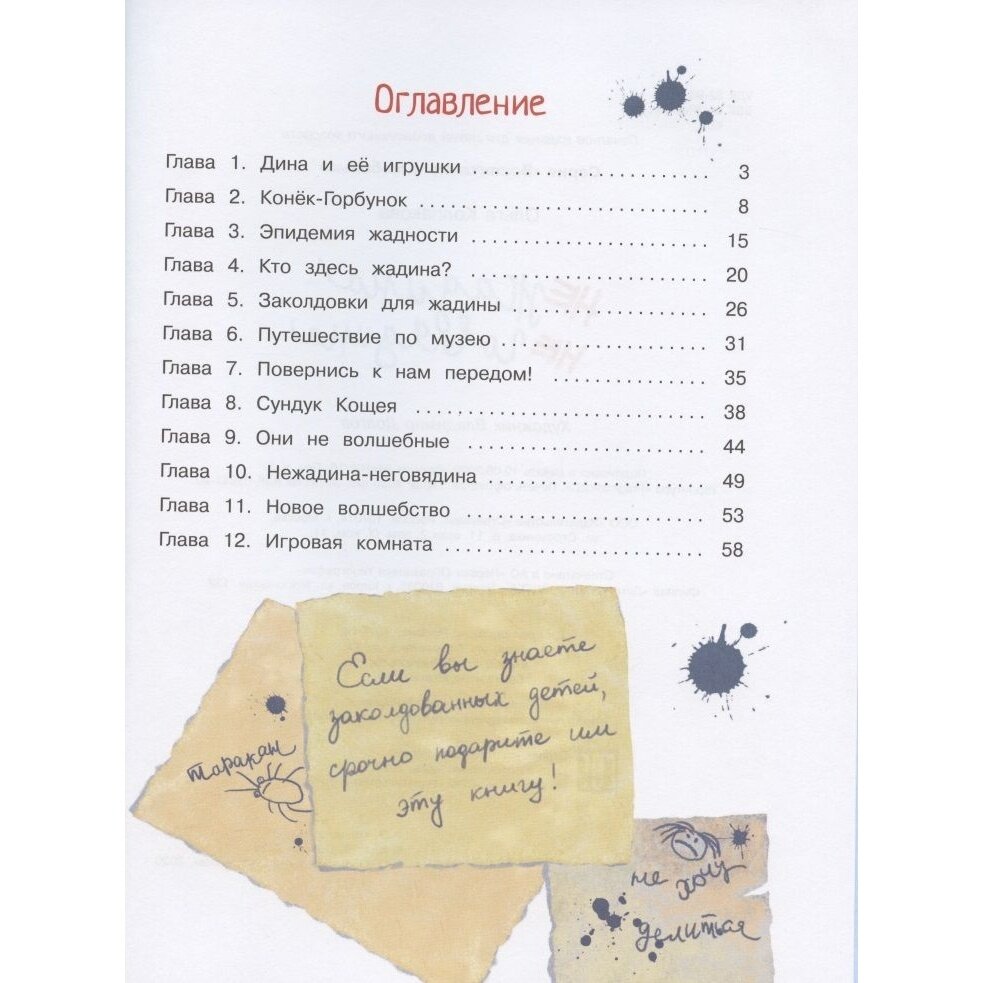 Оглавление
Глава 1. Дина и её игрушки ........................ 3
Глава 2. Конёк-Горбунок ............................. 8
Глава 3. Эпидемия жадности ........................ 15
Глава 4. Кто здесь жадина? ........................ 20
Глава 5. Заколдовки для жадины .................... 26
Глава 6. Путешествие по музею ..................... 31
Глава 7. Повернись к нам передом! ............... 35
Глава 8. Сундук Кощея ............................. 38
Глава 9. Они не волшебные ........................ 44
Глава 10. Нежадина-неговядина ...................... 49
Глава 11. Новое волшебство ........................ 53
Глава 12. Игровая комната .......................... 58
Если вы знаете
заколдованных детей,
срочно подарите им
эту книгу!
таракан
не хочу
делиться